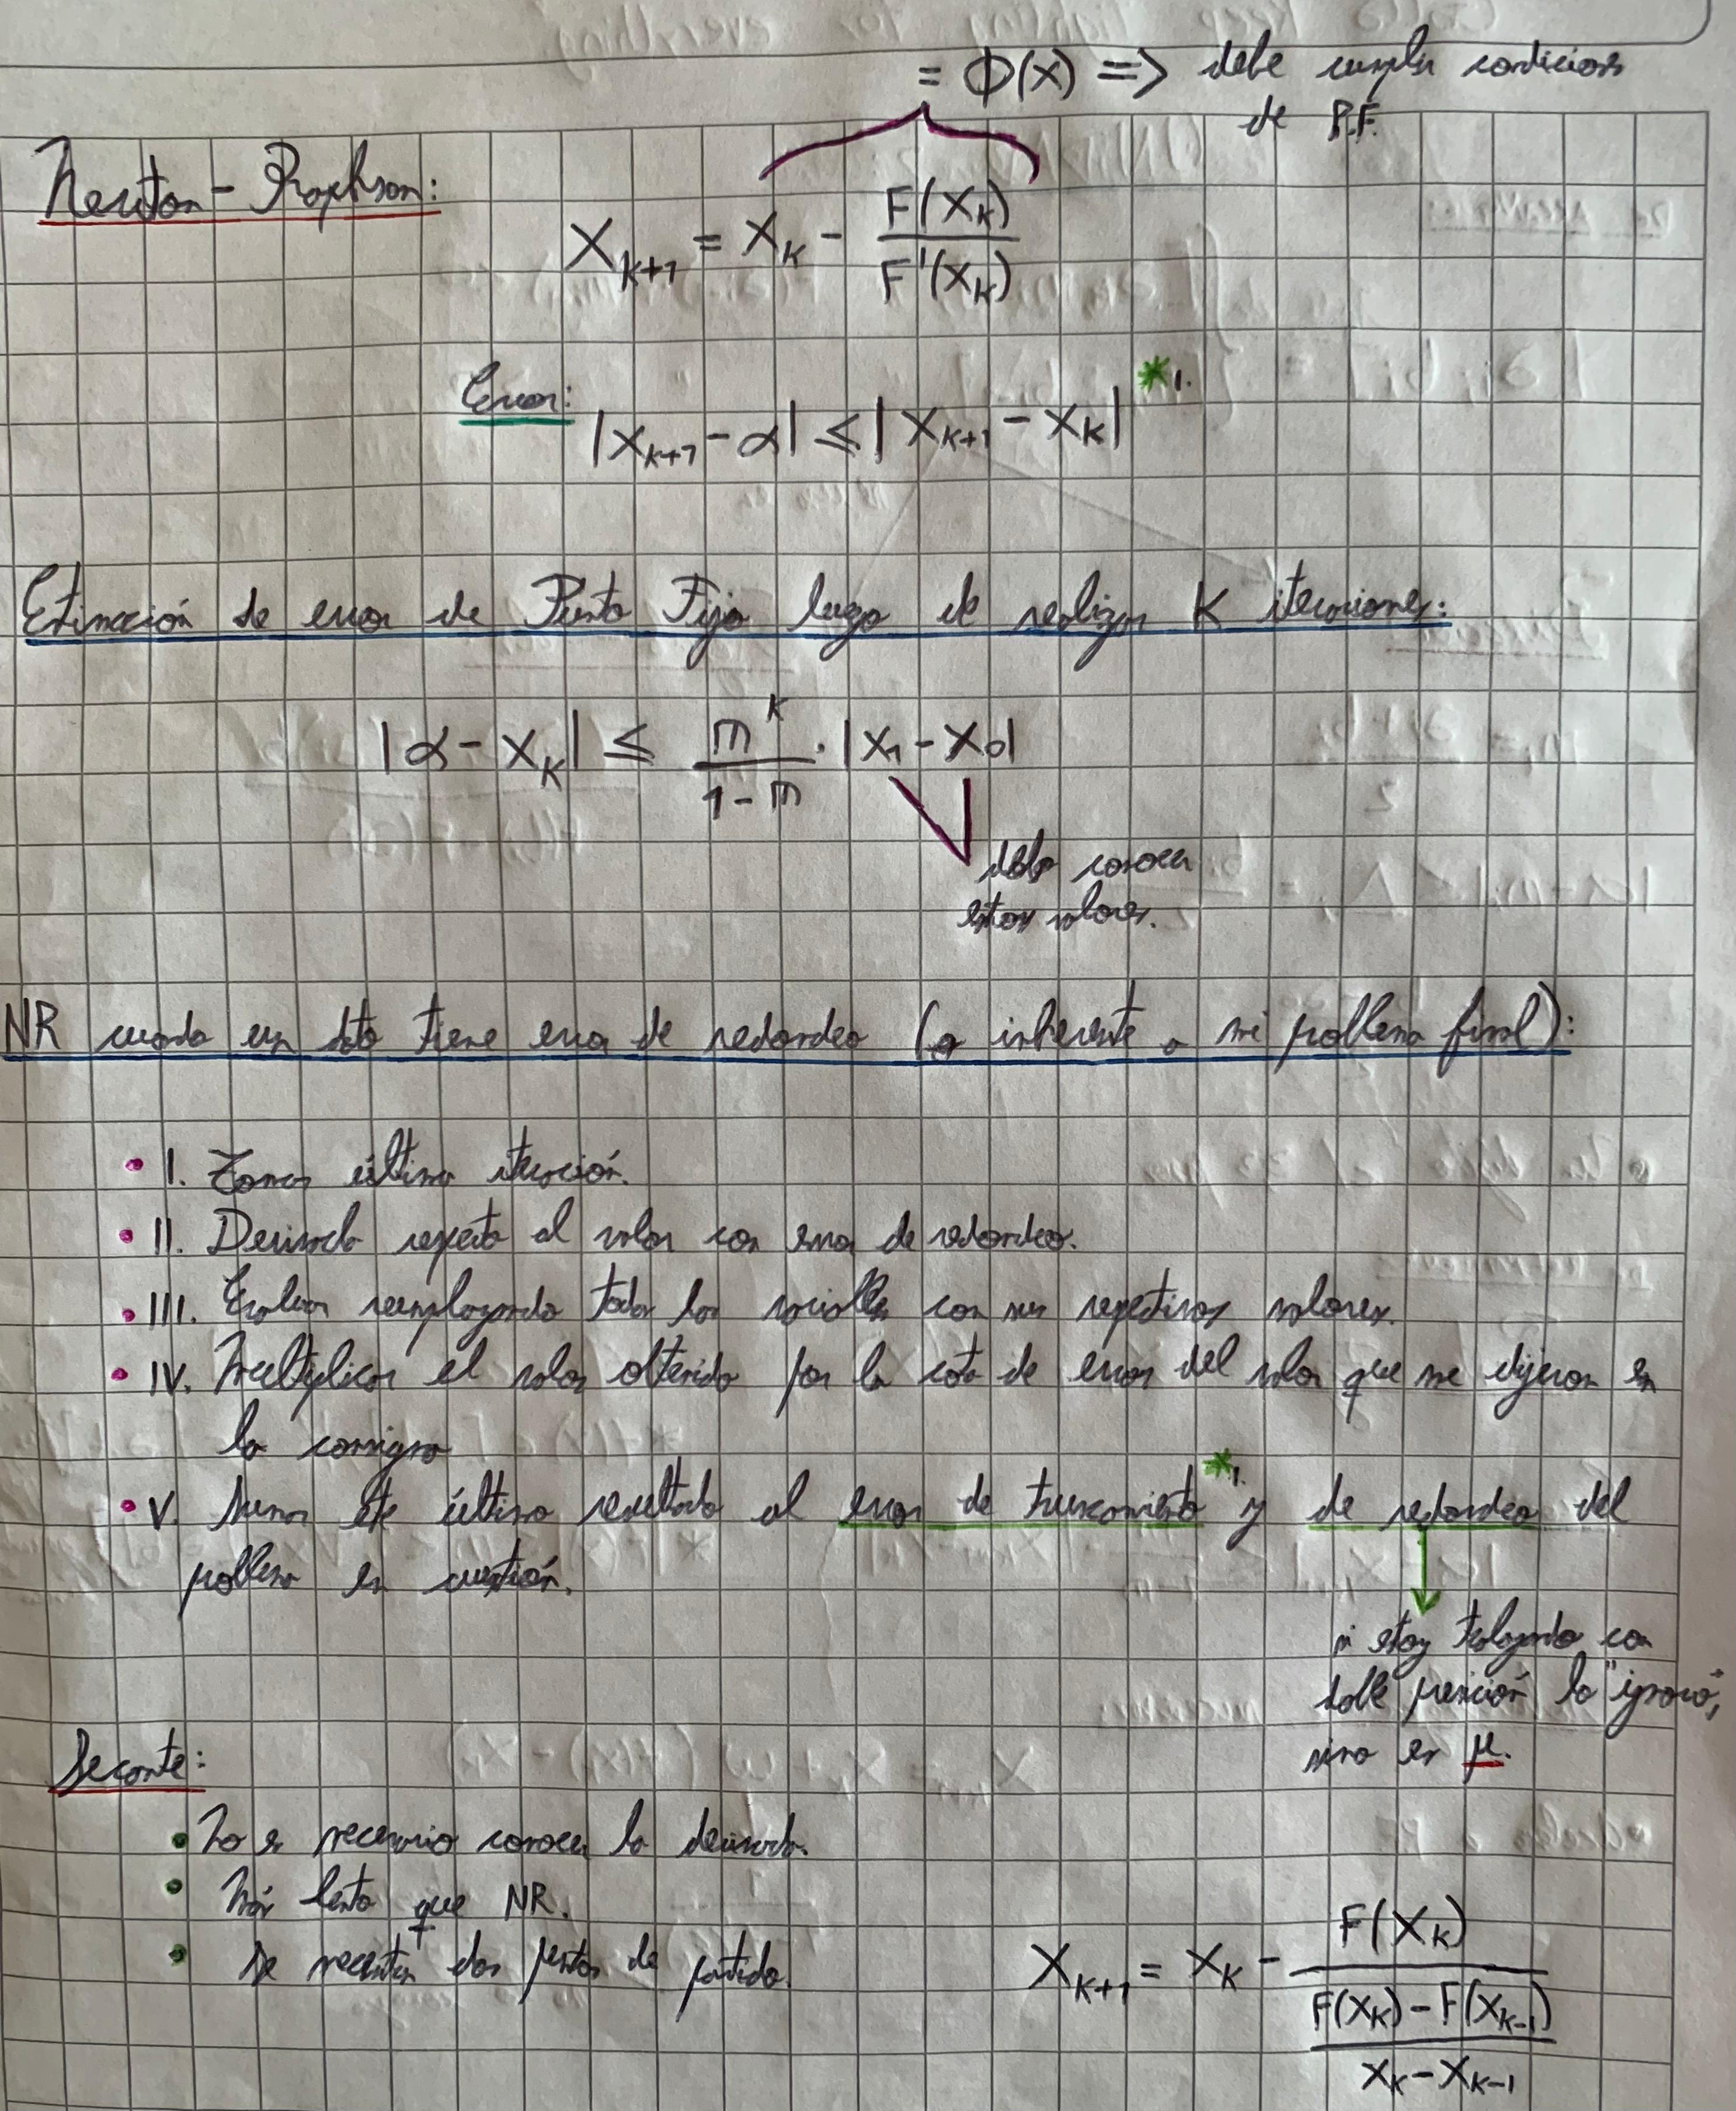 = Φ(x) => debe cumplir condiciones
de P.F.
Newton - Raphson:
X_{k+1} = X_k - F(X_k) / F'(X_k)
Error: |X_{k+1} - α| ≤ |X_{k+1} - X_k| *1.
Estimación de error de Punto Fijo luego de realizar K iteraciones:
|α - X_k| ≤ m^k / (1 - m) · |X_1 - X_0|
debo conocer
estos valores.
NR cuando un dato tiene error de redondeo (o inherente a mi problema final):
• I. Tomar última iteración.
• II. Derivarla respecto al valor con error de redondeo.
• III. Evaluar reemplazando todas las variables con sus respectivos valores.
• IV. Multiplicar el valor obtenido por la cota de error del valor que me dijeron en
la consigna
• V. Sumar este último resultado al error de truncamiento *1. y de redondeo del
problema en cuestión.
si estoy trabajando con
doble precisión lo "ignoro",
sino es μ.
Secante:
• No es necesario conocer la derivada.
• Más lento que NR.
• Se necesitan dos puntos de partida.
X_{k+1} = X_k - F(X_k) / ((F(X_k) - F(X_{k-1})) / (X_k - X_{k-1}))